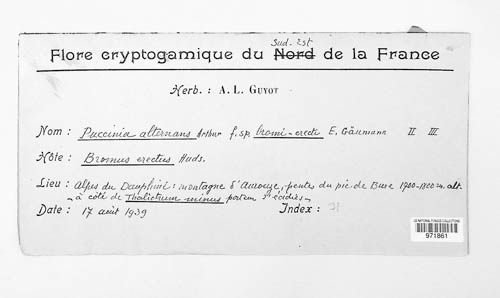 Sud-Est
Flore cryptogamique du Nord de la France
Herb. : A. L. GUYOT
Nom : Puccinia alternans Arthur f. sp. bromi-erecti E. Gäumann II III
Hôte : Bromus erectus Huds.
Lieu : Alpes du Dauphiné : montagne d'Aurouze, pentes du pic de Bure 1700-1800 m. alt.
à côté de Thalictrum minus portant écidies
Date : 17 août 1939 Index :
US NATIONAL FUNGUS COLLECTIONS
971861